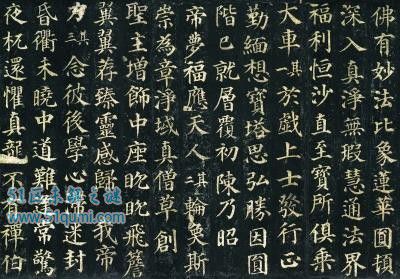 佛有妙法比象蓮華圓頓
深入真淨無瑕慧通法界
福利恒沙直至寶所俱乘
大車其一於戲上士發行正
勤緬想寶塔思弘勝因圓
階已就層覆初陳乃昭
帝夢福應天人其二輪奐斯
崇為章淨域真僧草創
聖主增飾中座眈眈飛簷
翼翼荐臻靈感歸我帝
力其三念彼後學心滯迷封
昏衢未曉中道難逢常驚
夜杌還懼真龍不禪伯
51区未解之谜
www.51qumi.com